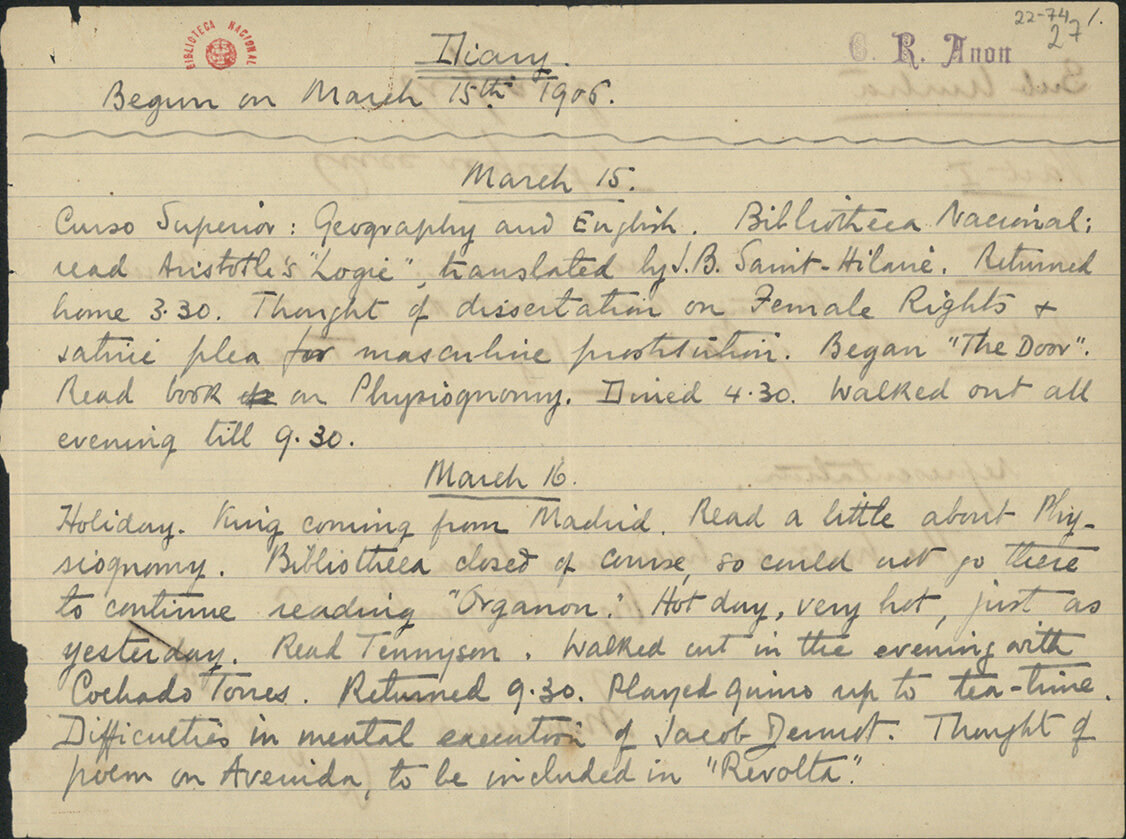 22-74 1.
27
BIBLIOTECA NACIONAL
C. R. Anon
Diary.
Begun on March 15th 1906.
March 15.
Curso Superior: Geography and English. Bibliotheca Nacional:
read Aristotle's "Logic", translated by J.B. Saint-Hilaire. Returned
home 3.30. Thought of dissertation on Female Rights +
satiric plea for masculine prostitution. Began "The Door".
Read book on Physiognomy. Dined 4.30. Walked out all
evening till 9.30.
March 16.
Holiday. King coming from Madrid. Read a little about Phy-
siognomy. Bibliotheca closed of course, so could not go there
to continue reading "Organon." Hot day, very hot, just as
yesterday. Read Tennyson. Walked out in the evening with
Cochado Torres. Returned 9.30. Played quino up to tea-time.
Difficulties in mental execution of Jacob Dermot. Thought of
poem on Avenida, to be included in "Revolta".